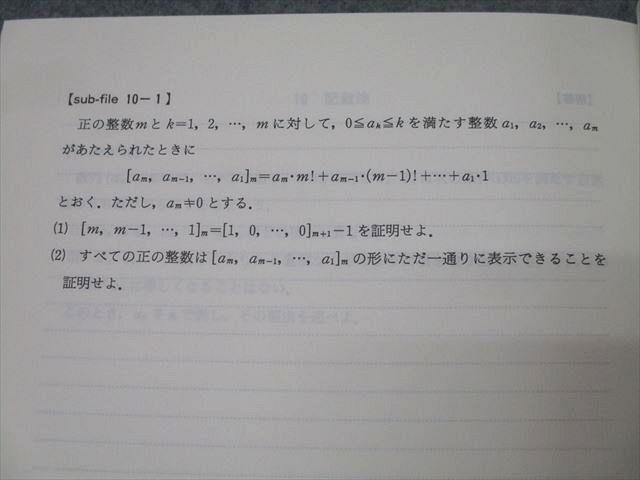 【sub-file 10－1】
正の整数mとk=1, 2, …, mに対して, 0≦aₖ≦kを満たす整数a₁, a₂, …, aₘ
があたえられたときに
[aₘ, aₘ₋₁, …, a₁]ₘ=aₘ・m!+aₘ₋₁・(m−1)!+…+a₁・1
とおく. ただし, aₘ≠0とする.
⑴ [m, m−1, …, 1]ₘ=[1, 0, …, 0]ₘ₊₁−1を証明せよ.
⑵ すべての正の整数は[aₘ, aₘ₋₁, …, a₁]ₘの形にただ一通りに表示できることを
証明せよ.